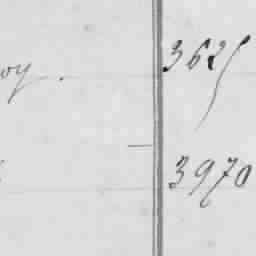 oy. 3625
3970